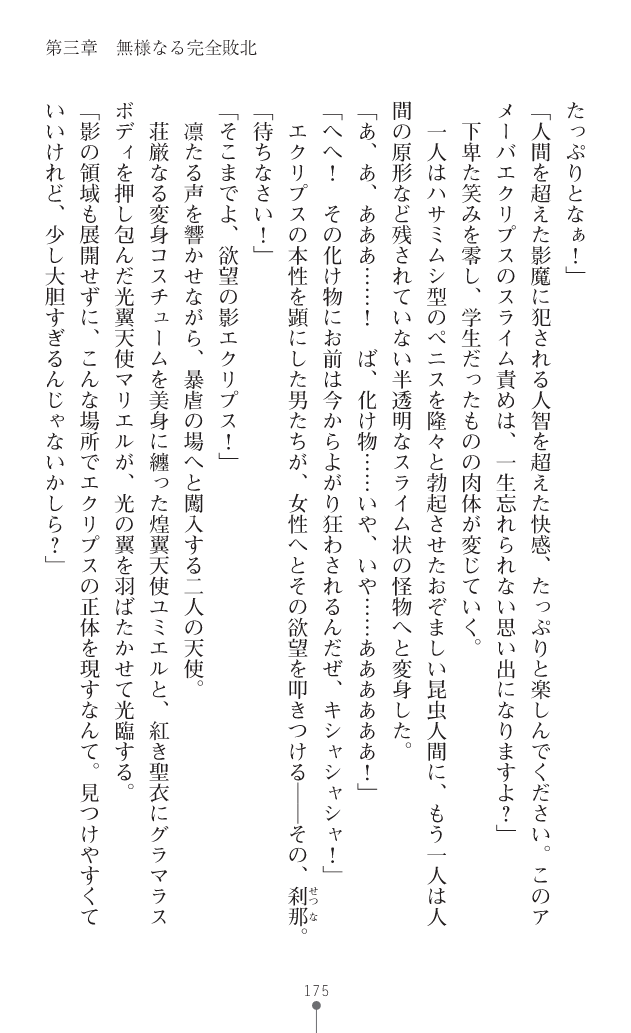 第三章　無様なる完全敗北
たっぷりとなぁ！」
「人間を超えた影魔に犯される人智を超えた快感、たっぷりと楽しんでください。このア
メーバエクリプスのスライム責めは、一生忘れられない思い出になりますよ？」
　下卑た笑みを零し、学生だったものの肉体が変じていく。
　一人はハサミムシ型のペニスを隆々と勃起させたおぞましい昆虫人間に、もう一人は人
間の原形など残されていない半透明なスライム状の怪物へと変身した。
「あ、あ、あああ……！　ば、化け物……いや、いや……ああああああ！」
「へへ！　その化け物にお前は今からよがり狂わされるんだぜ、キシャシャシャ！」
　エクリプスの本性を顕にした男たちが、女性へとその欲望を叩きつける――その、刹那。
せつな
「待ちなさい！」
「そこまでよ、欲望の影エクリプス！」
　凛たる声を響かせながら、暴虐の場へと闖入する二人の天使。
　荘厳なる変身コスチュームを美身に纏った煌翼天使ユミエルと、紅き聖衣にグラマラス
ボディを押し包んだ光翼天使マリエルが、光の翼を羽ばたかせて光臨する。
「影の領域も展開せずに、こんな場所でエクリプスの正体を現すなんて。見つけやすくて
いいけれど、少し大胆すぎるんじゃないかしら？」
175